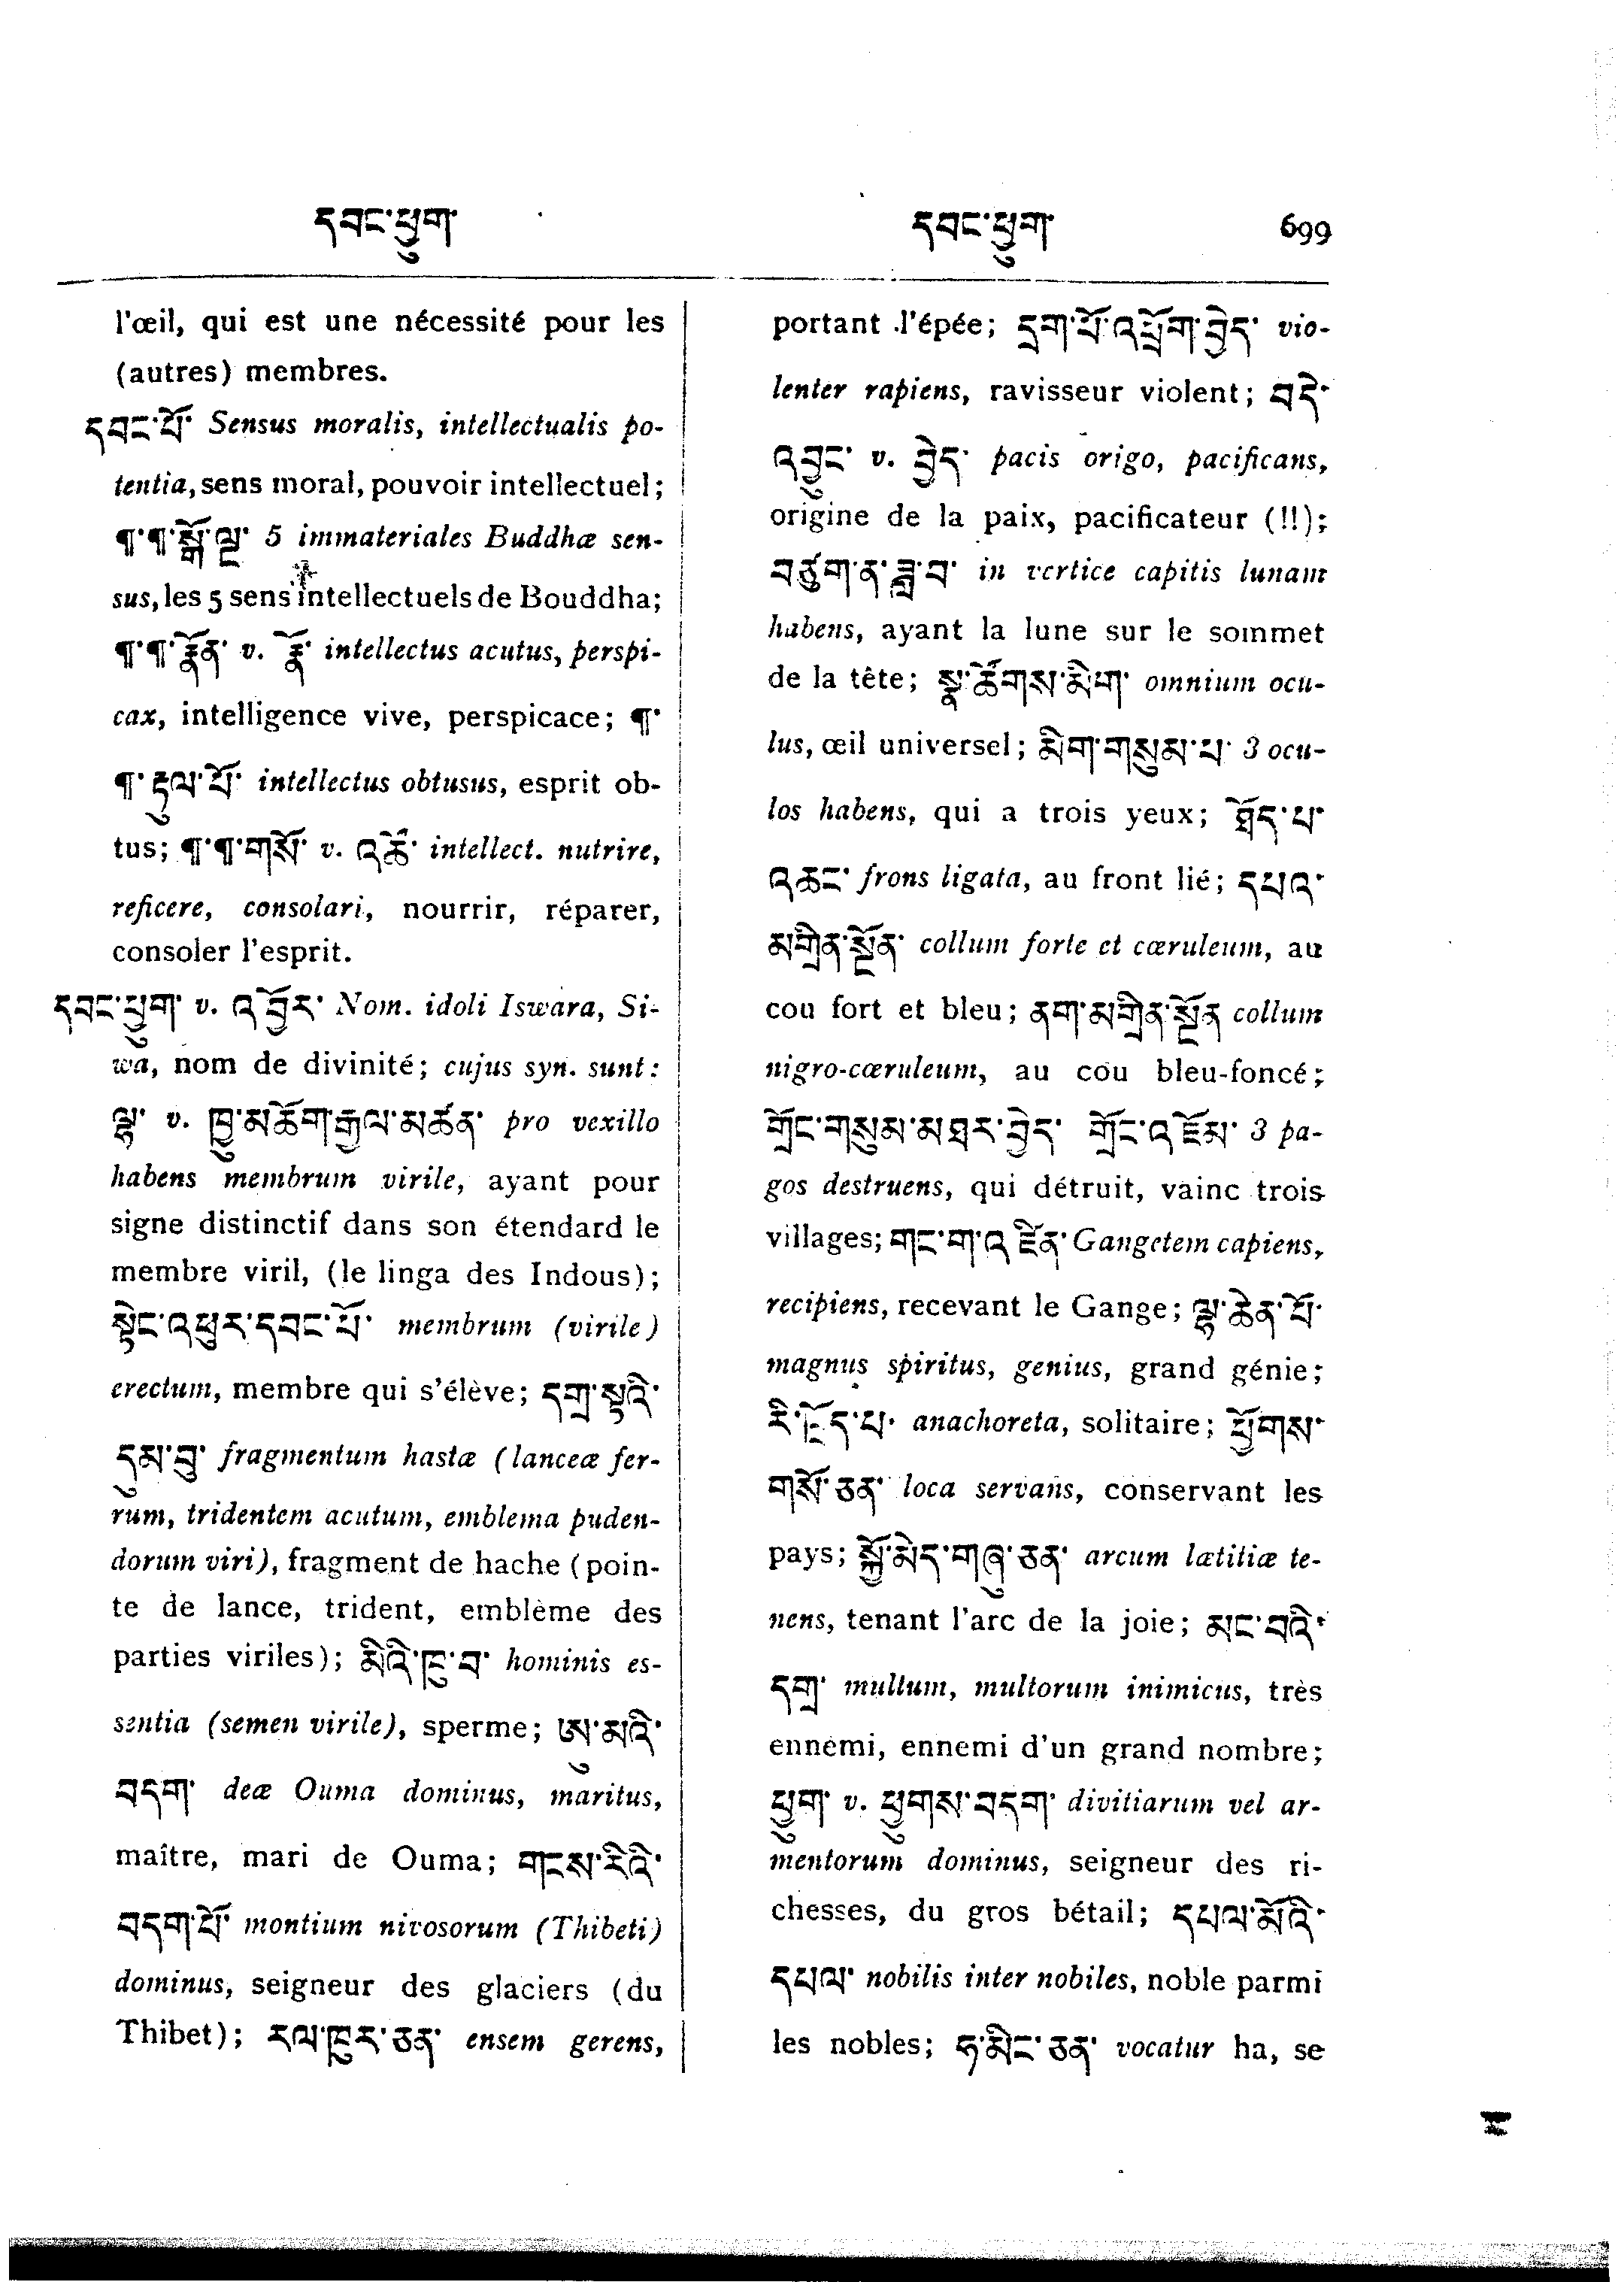 དབང་ཕྱུག་
དབང་ཕྱུག་ 699
l'œil, qui est une nécessité pour les
(autres) membres.
དབང་པོ་ Sensus moralis, intellectualis po-
tentia, sens moral, pouvoir intellectuel;
¶་¶་སྒོ་ལྔ་ 5 immateriales Buddhæ sen-
sus, les 5 sens intellectuels de Bouddha;
¶་¶་རྣོན་ v. རྣོ་ intellectus acutus, perspi-
cax, intelligence vive, perspicace; ¶་
¶་རྟུལ་པོ་ intellectus obtusus, esprit ob-
tus; ¶་¶་གསོ་ v. འཚོ་ intellect. nutrire,
reficere, consolari, nourrir, réparer,
consoler l'esprit.
དབང་ཕྱུག་ v. འབྱོར་ Nom. idoli Iswara, Si-
wa, nom de divinité; cujus syn. sunt:
ལྷ་ v. ཁྱུ་མཆོག་རྒྱལ་མཚན་ pro vexillo
habens membrum virile, ayant pour
signe distinctif dans son étendard le
membre viril, (le linga des Indous);
སྟེང་འཕུར་དབང་པོ་ membrum (virile)
erectum, membre qui s'élève; དགྲ་སྟའི་
དུམ་བུ་ fragmentum hastæ (lanceæ fer-
rum, tridentem acutum, emblema puden-
dorum viri), fragment de hache (poin-
te de lance, trident, emblème des
parties viriles); མིའི་ཁུ་བ་ hominis es-
sentia (semen virile), sperme; ཨུ་མའི་
བདག་ deæ Ouma dominus, maritus,
maître, mari de Ouma; གངས་རིའི་
བདག་པོ་ montium nivosorum (Thibeti)
dominus, seigneur des glaciers (du
Thibet); རལ་ཁུར་ཅན་ ensem gerens,
portant l'épée; དྲག་པོ་འཕྲོག་བྱེད་ vio-
lenter rapiens, ravisseur violent; བདེ་
འབྱུང་ v. བྱེད་ pacis origo, pacificans,
origine de la paix, pacificateur (!!);
བཙུག་ན་ཟླ་བ་ in vertice capitis lunam
habens, ayant la lune sur le sommet
de la tête; སྣ་ཚོགས་མིག་ omnium ocu-
lus, œil universel; མིག་གསུམ་པ་ 3 ocu-
los habens, qui a trois yeux; ཐོད་པ་
འཆང་ frons ligata, au front lié; དཔའ་
མགྲིན་སྔོན་ collum forte et cæruleum, au
cou fort et bleu; ནག་མགྲིན་སྔོན collum
nigro-cæruleum, au cou bleu-foncé;
གྲོང་གསུམ་མཐར་བྱེད་ གྲོང་འཇོམ་ 3 pa-
gos destruens, qui détruit, vainc trois
villages; གང་ག་འཛིན་ Gangetem capiens,
recipiens, recevant le Gange; ལྷ་ཆེན་པོ་
magnus spiritus, genius, grand génie;
རི་ཁྲོད་པ་ anachoreta, solitaire; ཕྱོགས་
གསོ་ཅན་ loca servans, conservant les
pays; སྐྱོ་མེད་གཞུ་ཅན་ arcum lætitiæ te-
nens, tenant l'arc de la joie; མང་བའི་
དགྲ་ multum, multorum inimicus, très
ennemi, ennemi d'un grand nombre;
ཕྱུག་ v. ཕྱུགས་བདག་ divitiarum vel ar-
mentorum dominus, seigneur des ri-
chesses, du gros bétail; དཔལ་མོའི་
དཔལ་ nobilis inter nobiles, noble parmi
les nobles; ཧ་མིང་ཅན་ vocatur ha, se